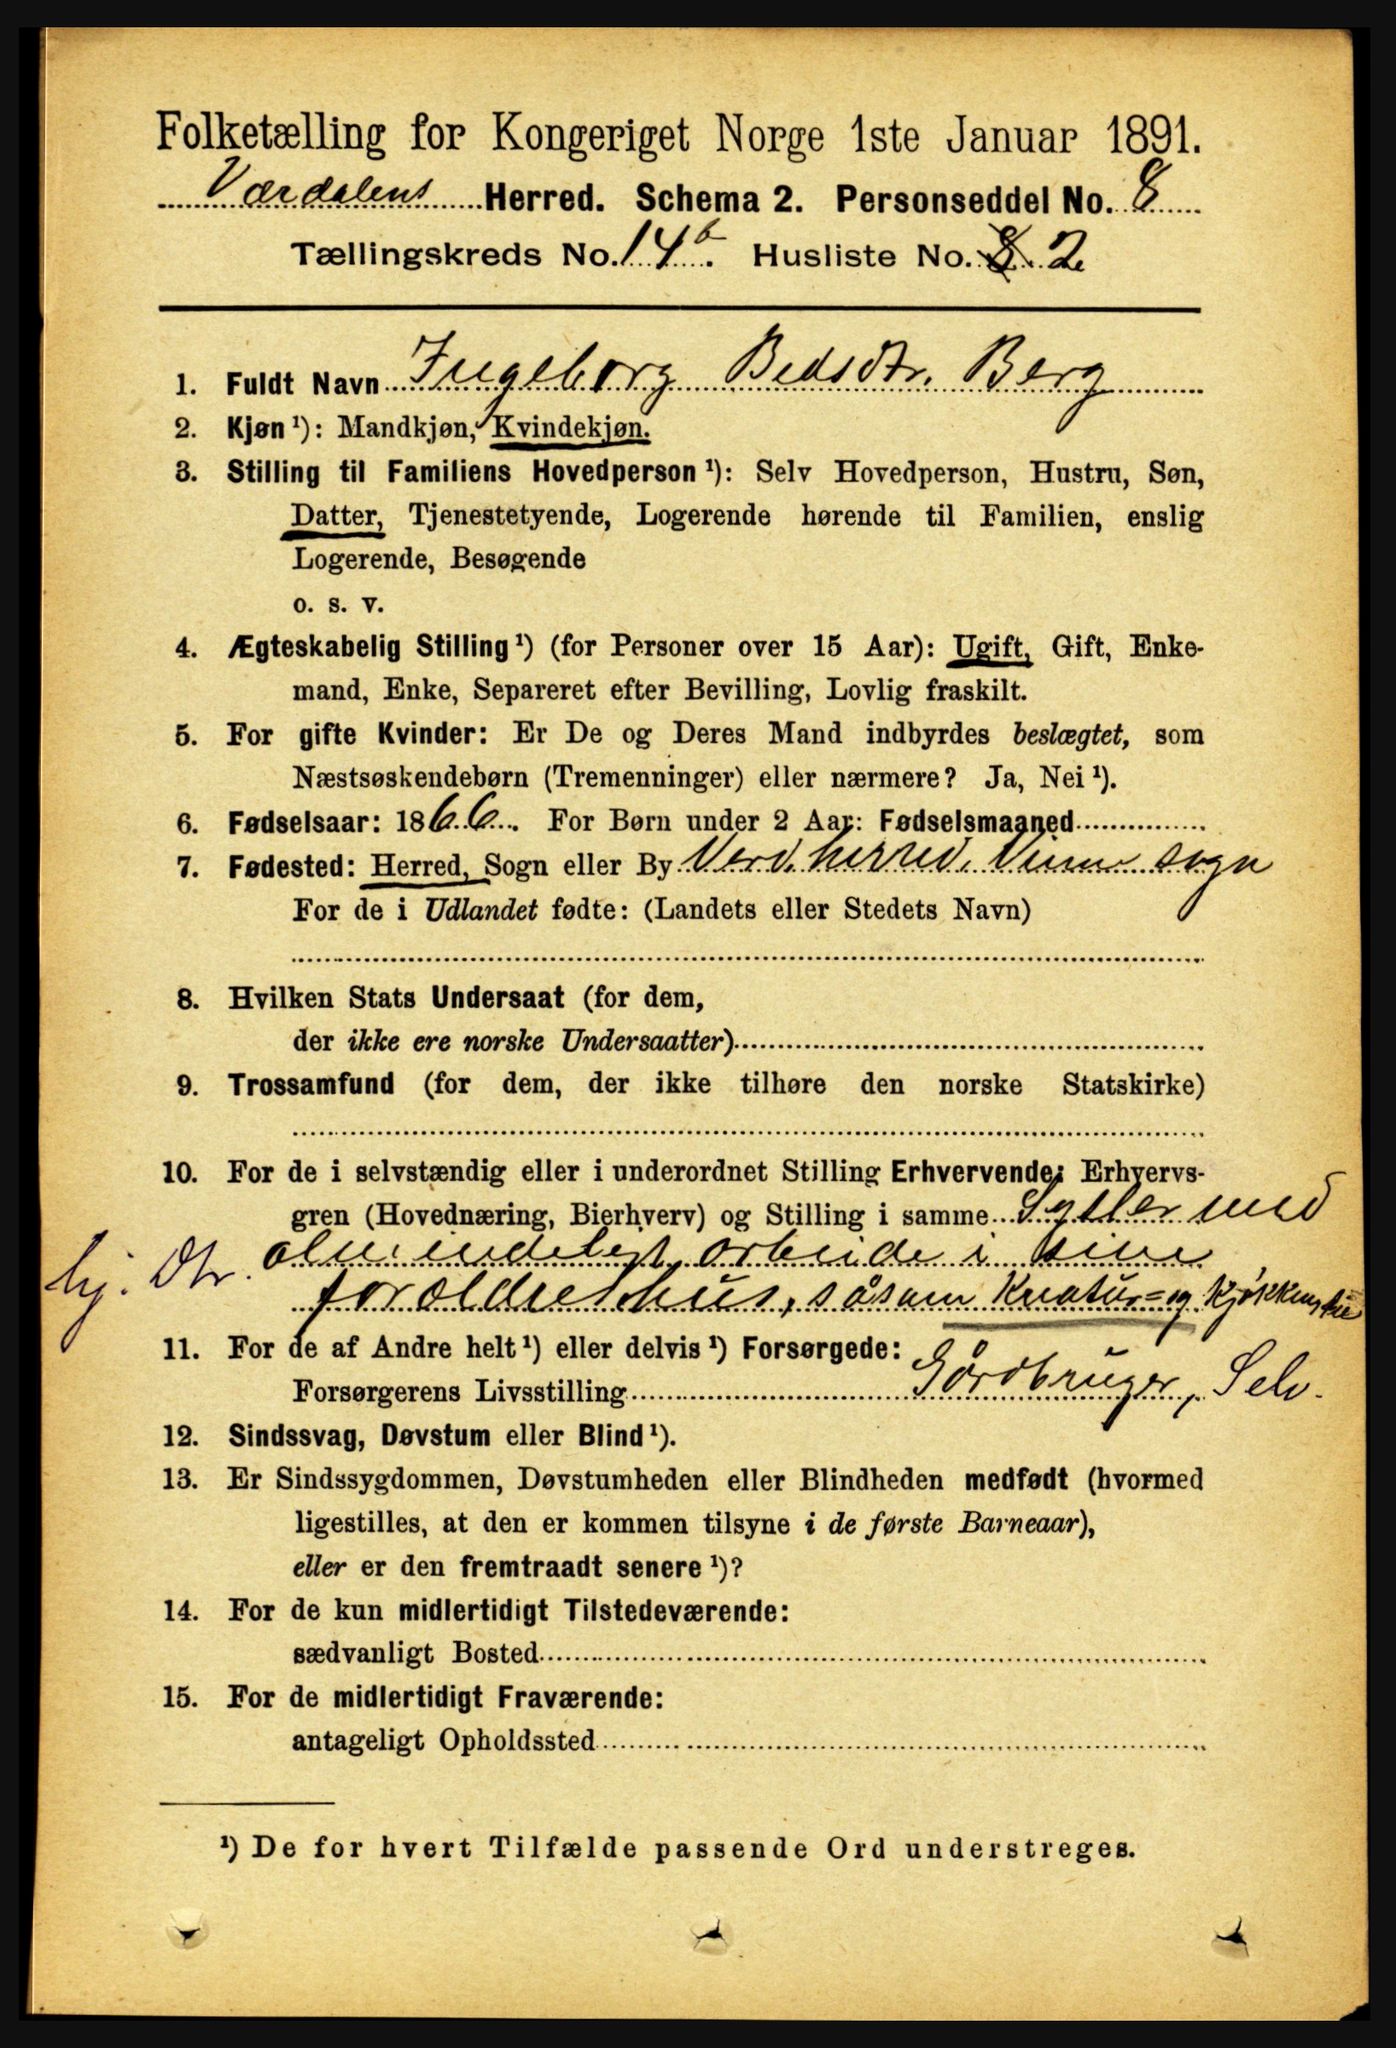 Folketælling for Kongeriget Norge 1ste Januar 1891.
Værdalens Herred. Schema 2. Personseddel No. 8
Tællingskreds No. 14b. Husliste No. 8 2
1. Fuldt Navn Ingeborg Bersdtr. Berg
2. Kjøn¹): Mandkjøn, Kvindekjøn.
3. Stilling til Familiens Hovedperson¹): Selv Hovedperson, Hustru, Søn,
Datter, Tjenestetyende, Logerende hørende til Familien, enslig
Logerende, Besøgende
o. s. v.
4. Ægteskabelig Stilling¹) (for Personer over 15 Aar): Ugift, Gift, Enke-
mand, Enke, Separeret efter Bevilling, Lovlig fraskilt.
5. For gifte Kvinder: Er De og Deres Mand indbyrdes beslægtet, som
Næstsøskendebørn (Tremenninger) eller nærmere? Ja, Nei¹).
6. Fødselsaar: 1866. For Børn under 2 Aar: Fødselsmaaned
7. Fødested: Herred, Sogn eller By Verd. herred. Vinne sogn
For de i Udlandet fødte: (Landets eller Stedets Navn)
8. Hvilken Stats Undersaat (for dem,
der ikke ere norske Undersaatter)
9. Trossamfund (for dem, der ikke tilhøre den norske Statskirke)
10. For de i selvstændig eller i underordnet Stilling Erhvervende: Erhvervs-
gren (Hovednæring, Bierhverv) og Stilling i samme Sysler med
almindeligt arbeide i sine
hj. Dtr. foreldres hus, såsom Kreatur= og kjøkken
11. For de af Andre helt¹) eller delvis¹) Forsørgede:
Forsørgerens Livsstilling Gårdbruger, Selv.
12. Sindssvag, Døvstum eller Blind¹).
13. Er Sindssygdommen, Døvstumheden eller Blindheden medfødt (hvormed
ligestilles, at den er kommen tilsyne i de første Barneaar),
eller er den fremtraadt senere¹)?
14. For de kun midlertidigt Tilstedeværende:
sædvanligt Bosted
15. For de midlertidigt Fraværende:
antageligt Opholdssted
¹) De for hvert Tilfælde passende Ord understreges.